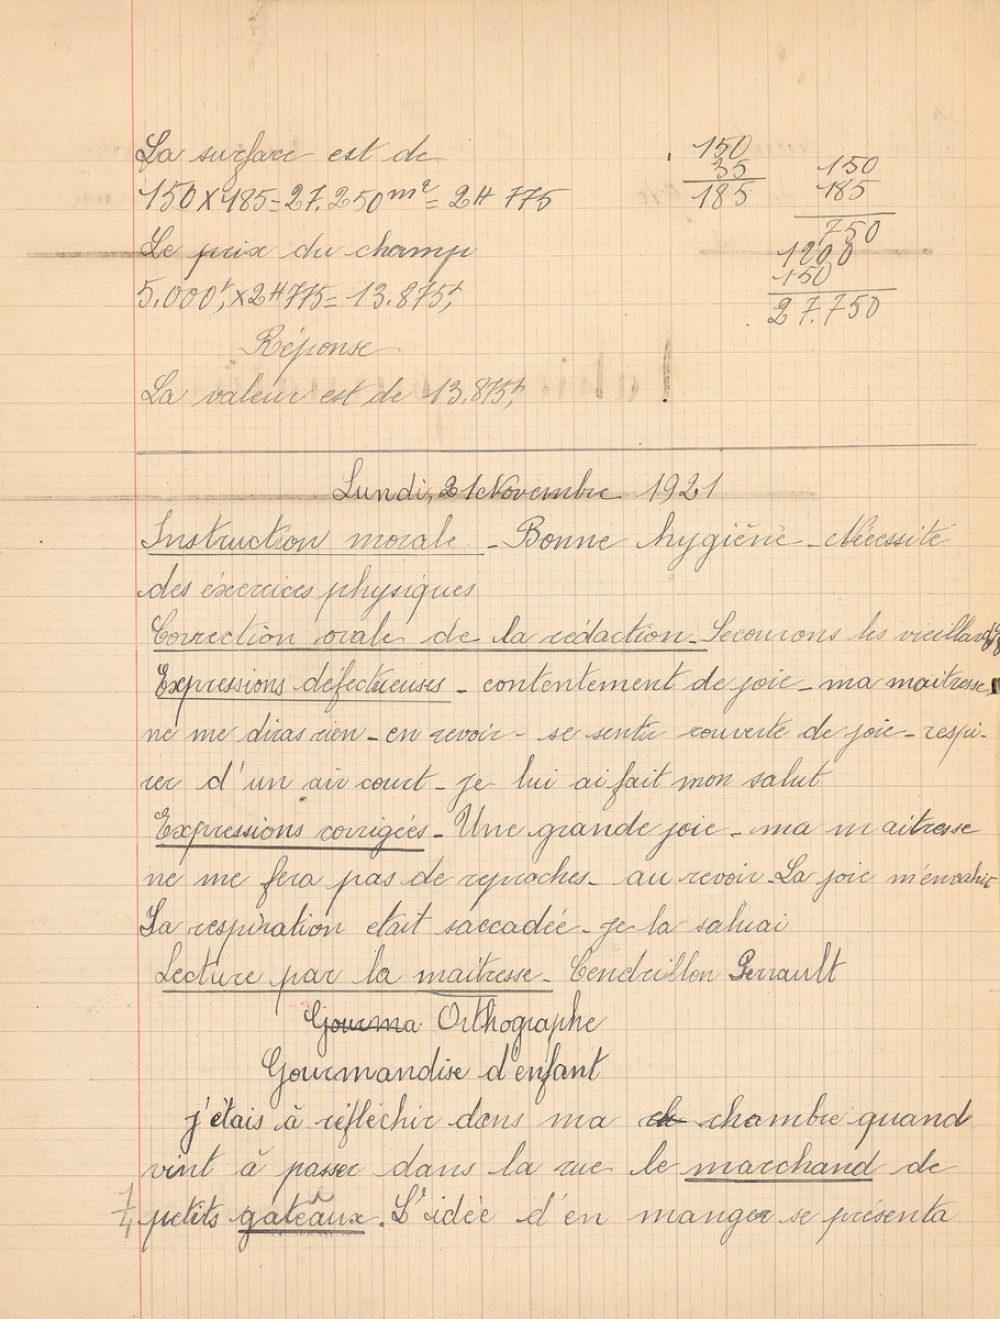 La surface est de
150 × 185 = 27.250 m² = 2H 775
150
35
185
150
185
750
1200
150
27.750
Le prix du champ
5.000f, × 2H775 = 13.875f,
Réponse
La valeur est de 13.875f,
Lundi, 21 Novembre 1921
Instruction morale - Bonne hygiène - Nécessité
des éxercices physiques
Correction orale de la rédaction - Secourons les vieillards
Expressions défectueuses - contentement de joie - ma maitresse
ne me diras rien - en revoir - se sentir couverte de joie - respi-
rer d'un air court - je lui ai fait mon salut
Expressions corrigées - Une grande joie - ma maitresse
ne me fera pas de reproches - au revoir - La joie m'envahit
La respiration était saccadée - je la saluai
Lecture par la maitresse - Cendrillon Perrault
Gourma Orthographe
Gourmandise d'enfant
j'étais à réfléchir dans ma ch chambre quand
vint à passer dans la rue le marchand de
1/4 petits gâteaux. L'idée d'en manger se présenta